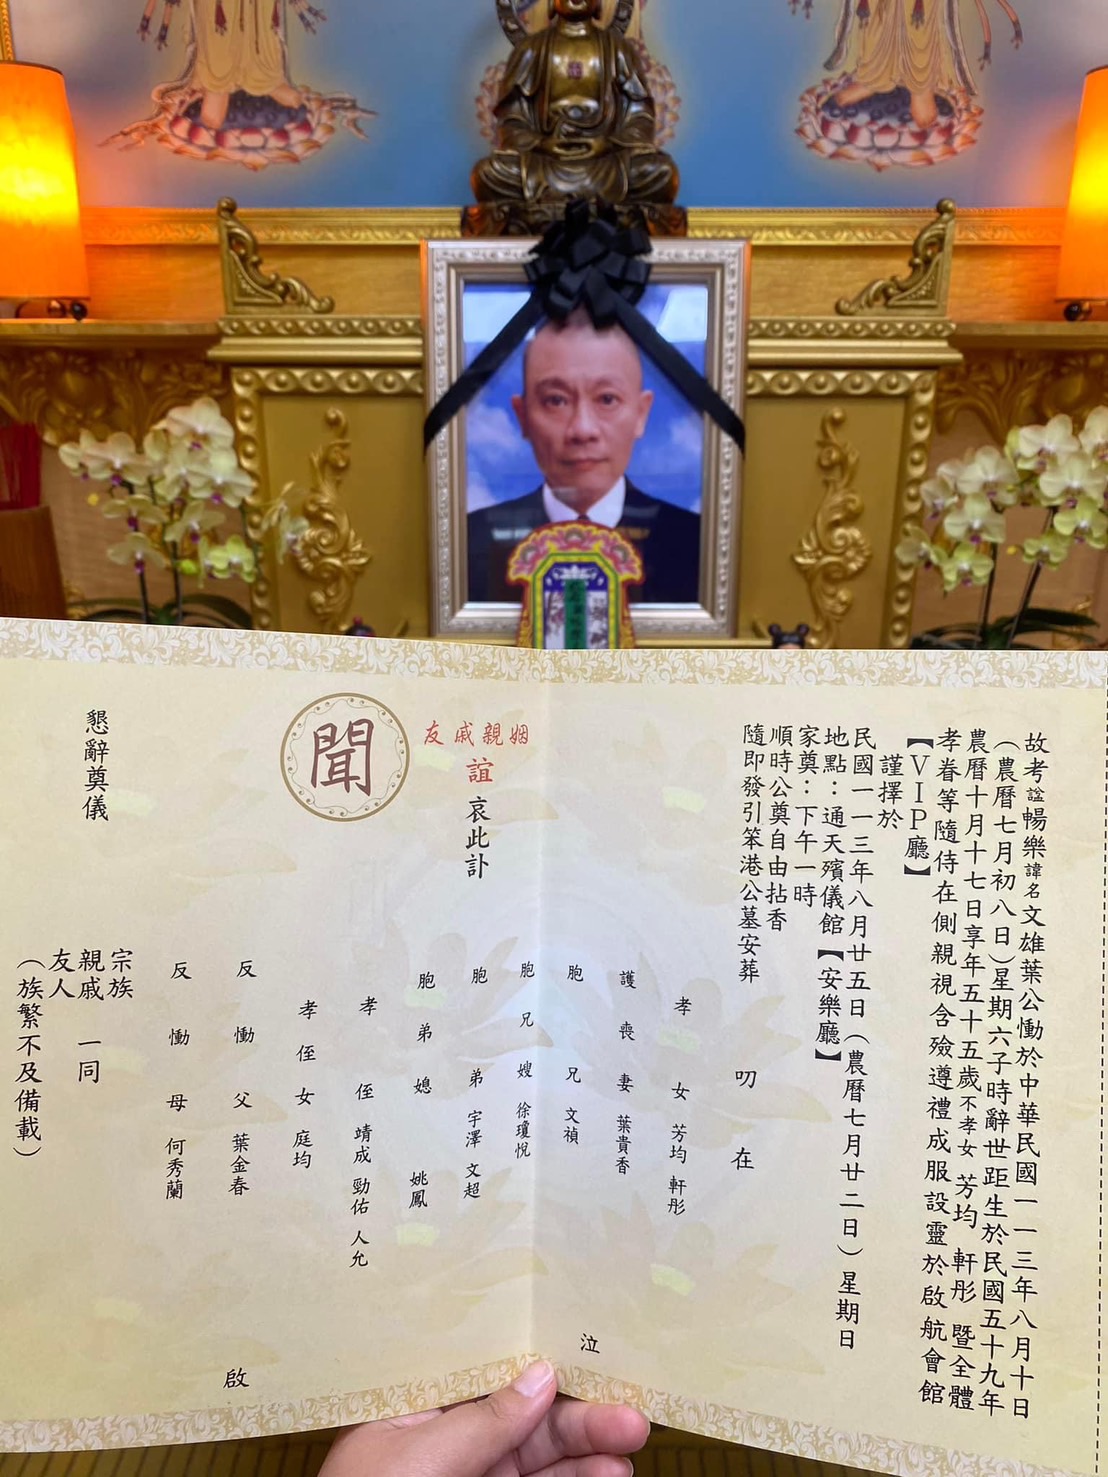 故考諡暢樂諱名文雄葉公慟於中華民國一一三年八月十日
（農曆七月初八日）星期六子時辭世距生於民國五十九年
農曆十月十七日享年五十五歲不孝女 芳均 軒彤 暨全體
孝眷等隨侍在側親視含殮遵禮成服設靈於啟航會館
【VIP廳】
謹擇於
民國一一三年八月廿五日（農曆七月廿二日）星期日
地點：通天殯儀館【安樂廳】
家奠：下午一時
順時公奠自由拈香
隨即發引笨港公墓安葬
叨在
姻親戚友
誼
哀此訃
聞
孝女 芳均 軒彤
護喪妻 葉貴香
胞兄 文禎
胞兄嫂 徐瓊悅
胞弟 宇澤 文超
胞弟媳 姚鳳
孝侄 靖成 勁佑 人允
孝侄女 庭均
反慟父 葉金春
反慟母 何秀蘭
泣
啟
宗族
親戚 一同
友人
（族繁不及備載）
懇辭奠儀